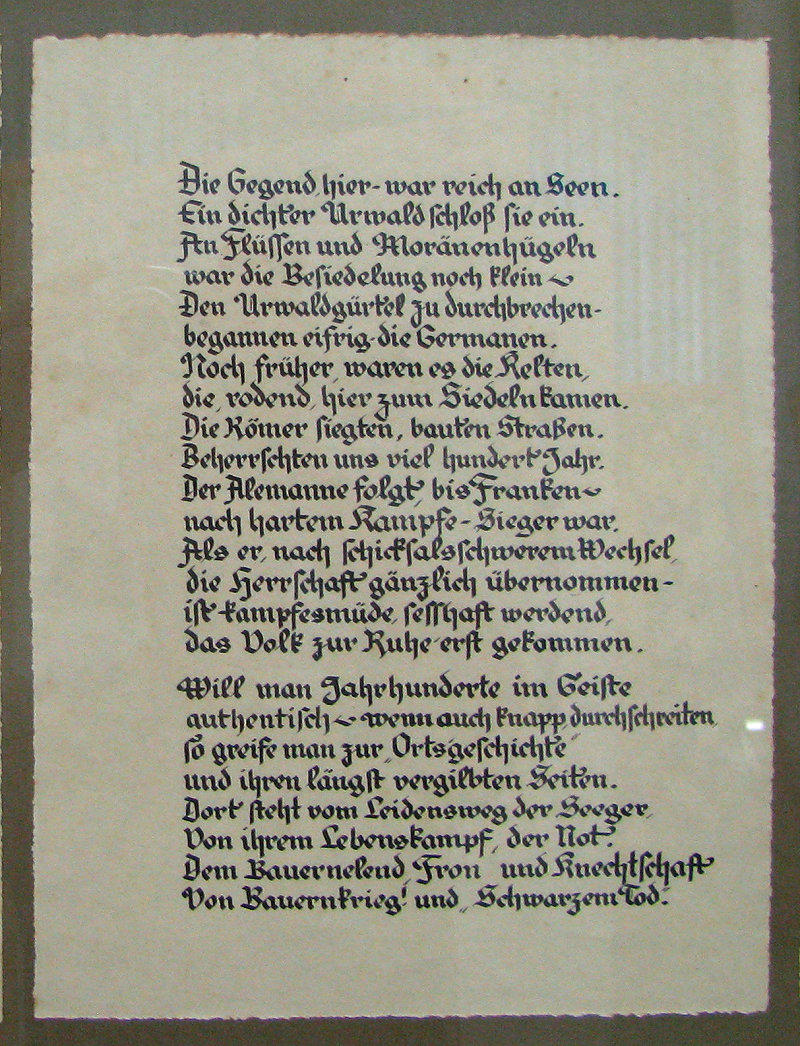 Die Gegend, hier- war reich an Seen.
Ein dichter Urwald schloß sie ein.
An Flüssen und Moränenhügeln
war die Besiedelung noch klein ~
Den Urwaldgürtel zu durchbrechen-
begannen eifrig-die Germanen.
Noch früher, waren es die Kelten,
die, rodend, hier zum Siedeln kamen.
Die Römer siegten, bauten Straßen.
Beherrschten uns viel hundert Jahr.
Der Alemanne folgt, bis Franken~
nach hartem Kampfe-Sieger war.
Als er, nach schicksalsschwerem Wechsel,
die Herrschaft gänzlich übernommen-
ist-kampfesmüde, sesshaft werdend,
das Volk zur Ruhe-erst gekommen.
Will man Jahrhunderte im Geiste
authentisch ~ wenn auch knapp durchschreiten,
so greife man zur „Ortsgeschichte"
und ihren längst vergilbten Seiten.
Dort steht vom Leidensweg der Seeger,
Von ihrem Lebenskampf, der Not.
Dem Bauernelend, Fron und Knechtschaft
Von Bauernkrieg! und „Schwarzem Tod.